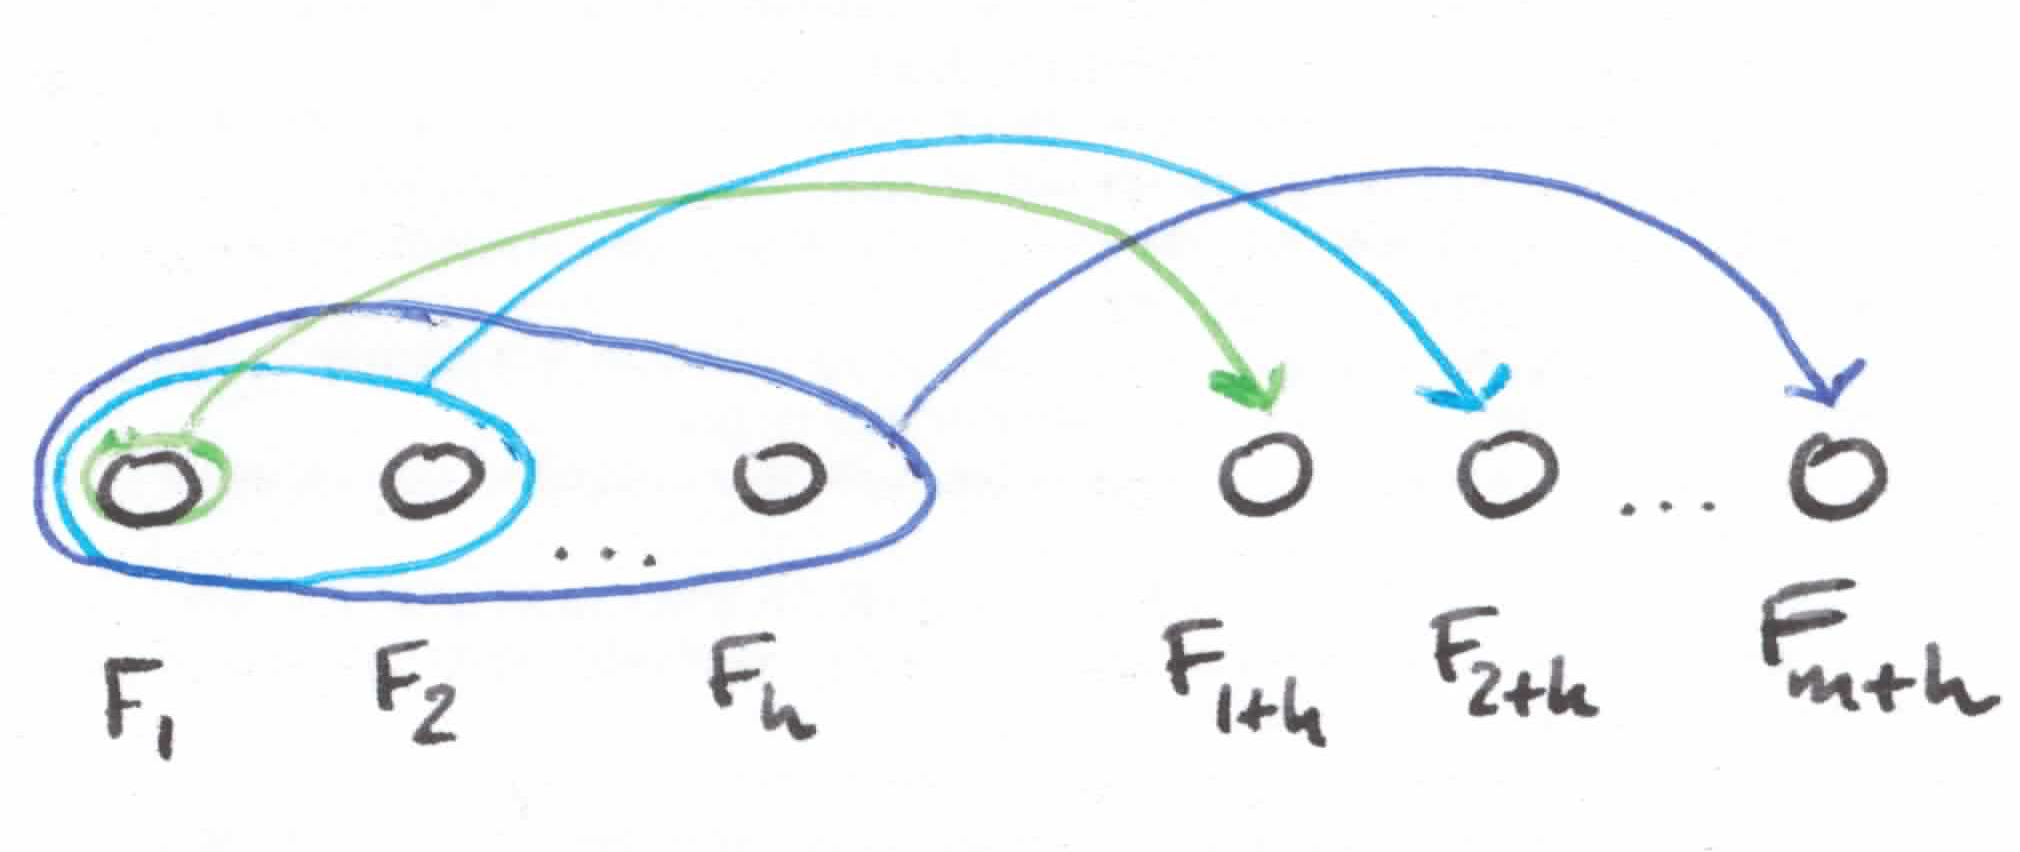 ... ...
F₁ F₂ Fₕ F₁₊ₕ F₂₊ₕ Fₘ₊ₕ